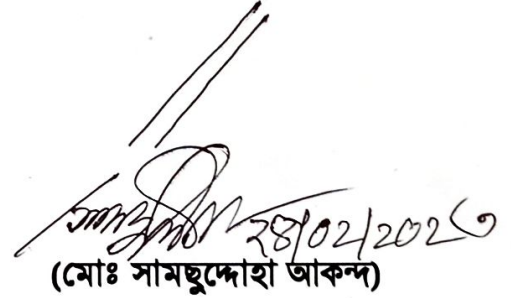 ২৪/০২/২০২৩
(মোঃ সামছুদ্দোহা আকন্দ)